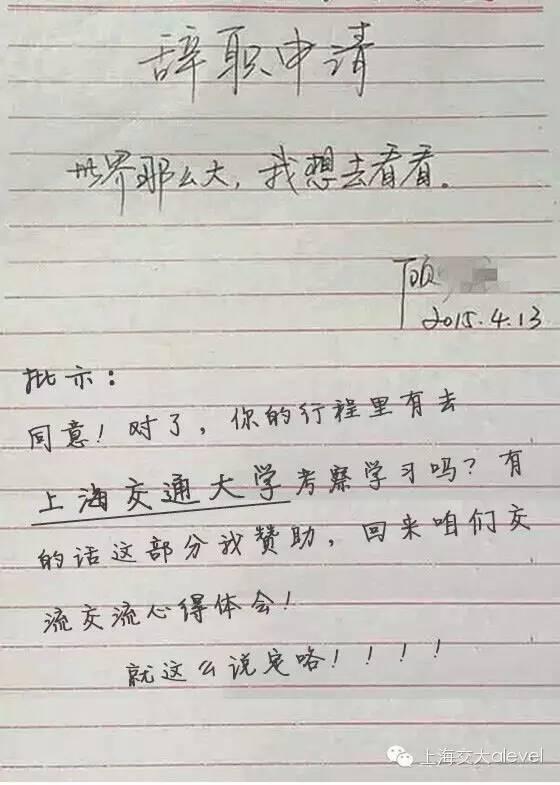 辞职申请
世界那么大，我想去看看。
顾
2015.4.13
批示：
同意！对了，你的行程里有去
上海交通大学考察学习吗？有
的话这部分我赞助，回来咱们交
流交流心得体会！
就这么说定咯！！！！
上海交大alevel